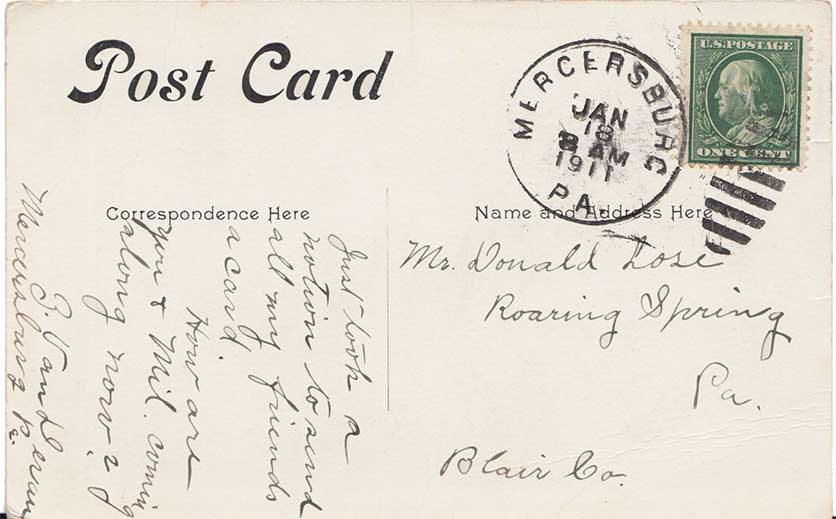 Post Card
MERCERSBURG
JAN
18
8 AM
1911
PA.
U.S. POSTAGE
ONE CENT
Correspondence Here
Name and Address Here
Just took a
notion to send
all my friends
a card.
How are
you & Mil. coming
along now?
Mercersburg Pa.
Mr. Donald Lose
Roaring Spring
Pa.
Blair Co.